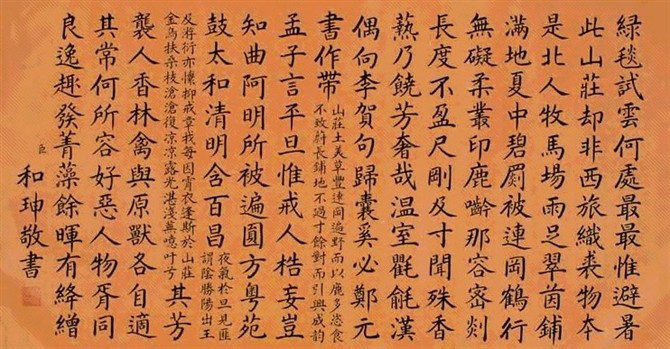 綠毯試雲何處最最惟避暑
此山莊却非西旅織裘物本
是北人牧馬場雨足翠茵鋪
滿地夏中碧罽被連岡鶴行
無礙柔叢印鹿嚙那容密剡
長度不盈尺剛及寸聞殊香
爇乃饒芳奢哉温室氍毹漢
偶向李賀句歸囊奚必鄭元
書作帶
山莊上美草豐連岡遍野而以鹿多恣食
不致蔚長鋪地不過寸餘對而引興成韵
孟子言平旦惟戒人梏妄豈
知曲阿明所被遍圓方粵苑
鼓太和清明含百昌
夜氣於旦見匪
謂陰勝陽出王
及游衍亦懍抑戒章我每因宵衣逢斯於山莊
金烏扶桑枝滄滄復凉凉露光湛淺嘹叶兮
其芳
襲人香林禽與原獸各自適
其常何所容好惡人物胥同
良逸趣發菁藻餘暉有絳繒
臣和珅敬書